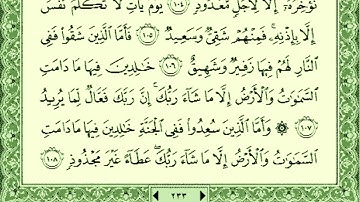 نُؤَخِّرُهُۥٓ إِلَّا لِأَجَلٍ مَّعْدُودٍ ١٠٤ يَوْمَ يَأْتِ لَا تَكَلَّمُ نَفْسٌ
إِلَّا بِإِذْنِهِۦ فَمِنْهُمْ شَقِىٌّ وَسَعِيدٌ ١٠٥ فَأَمَّا ٱلَّذِينَ شَقُوا۟ فَفِى
ٱلنَّارِ لَهُمْ فِيهَا زَفِيرٌ وَشَهِيقٌ ١٠٦ خَٰلِدِينَ فِيهَا مَا دَامَتِ
ٱلسَّمَٰوَٰتُ وَٱلْأَرْضُ إِلَّا مَا شَآءَ رَبُّكَ إِنَّ رَبَّكَ فَعَّالٌ لِّمَا يُرِيدُ
١٠٧ ۞ وَأَمَّا ٱلَّذِينَ سُعِدُوا۟ فَفِى ٱلْجَنَّةِ خَٰلِدِينَ فِيهَا مَا دَامَتِ
ٱلسَّمَٰوَٰتُ وَٱلْأَرْضُ إِلَّا مَا شَآءَ رَبُّكَ عَطَآءً غَيْرَ مَجْذُوذٍ ١٠٨
٢٣٣